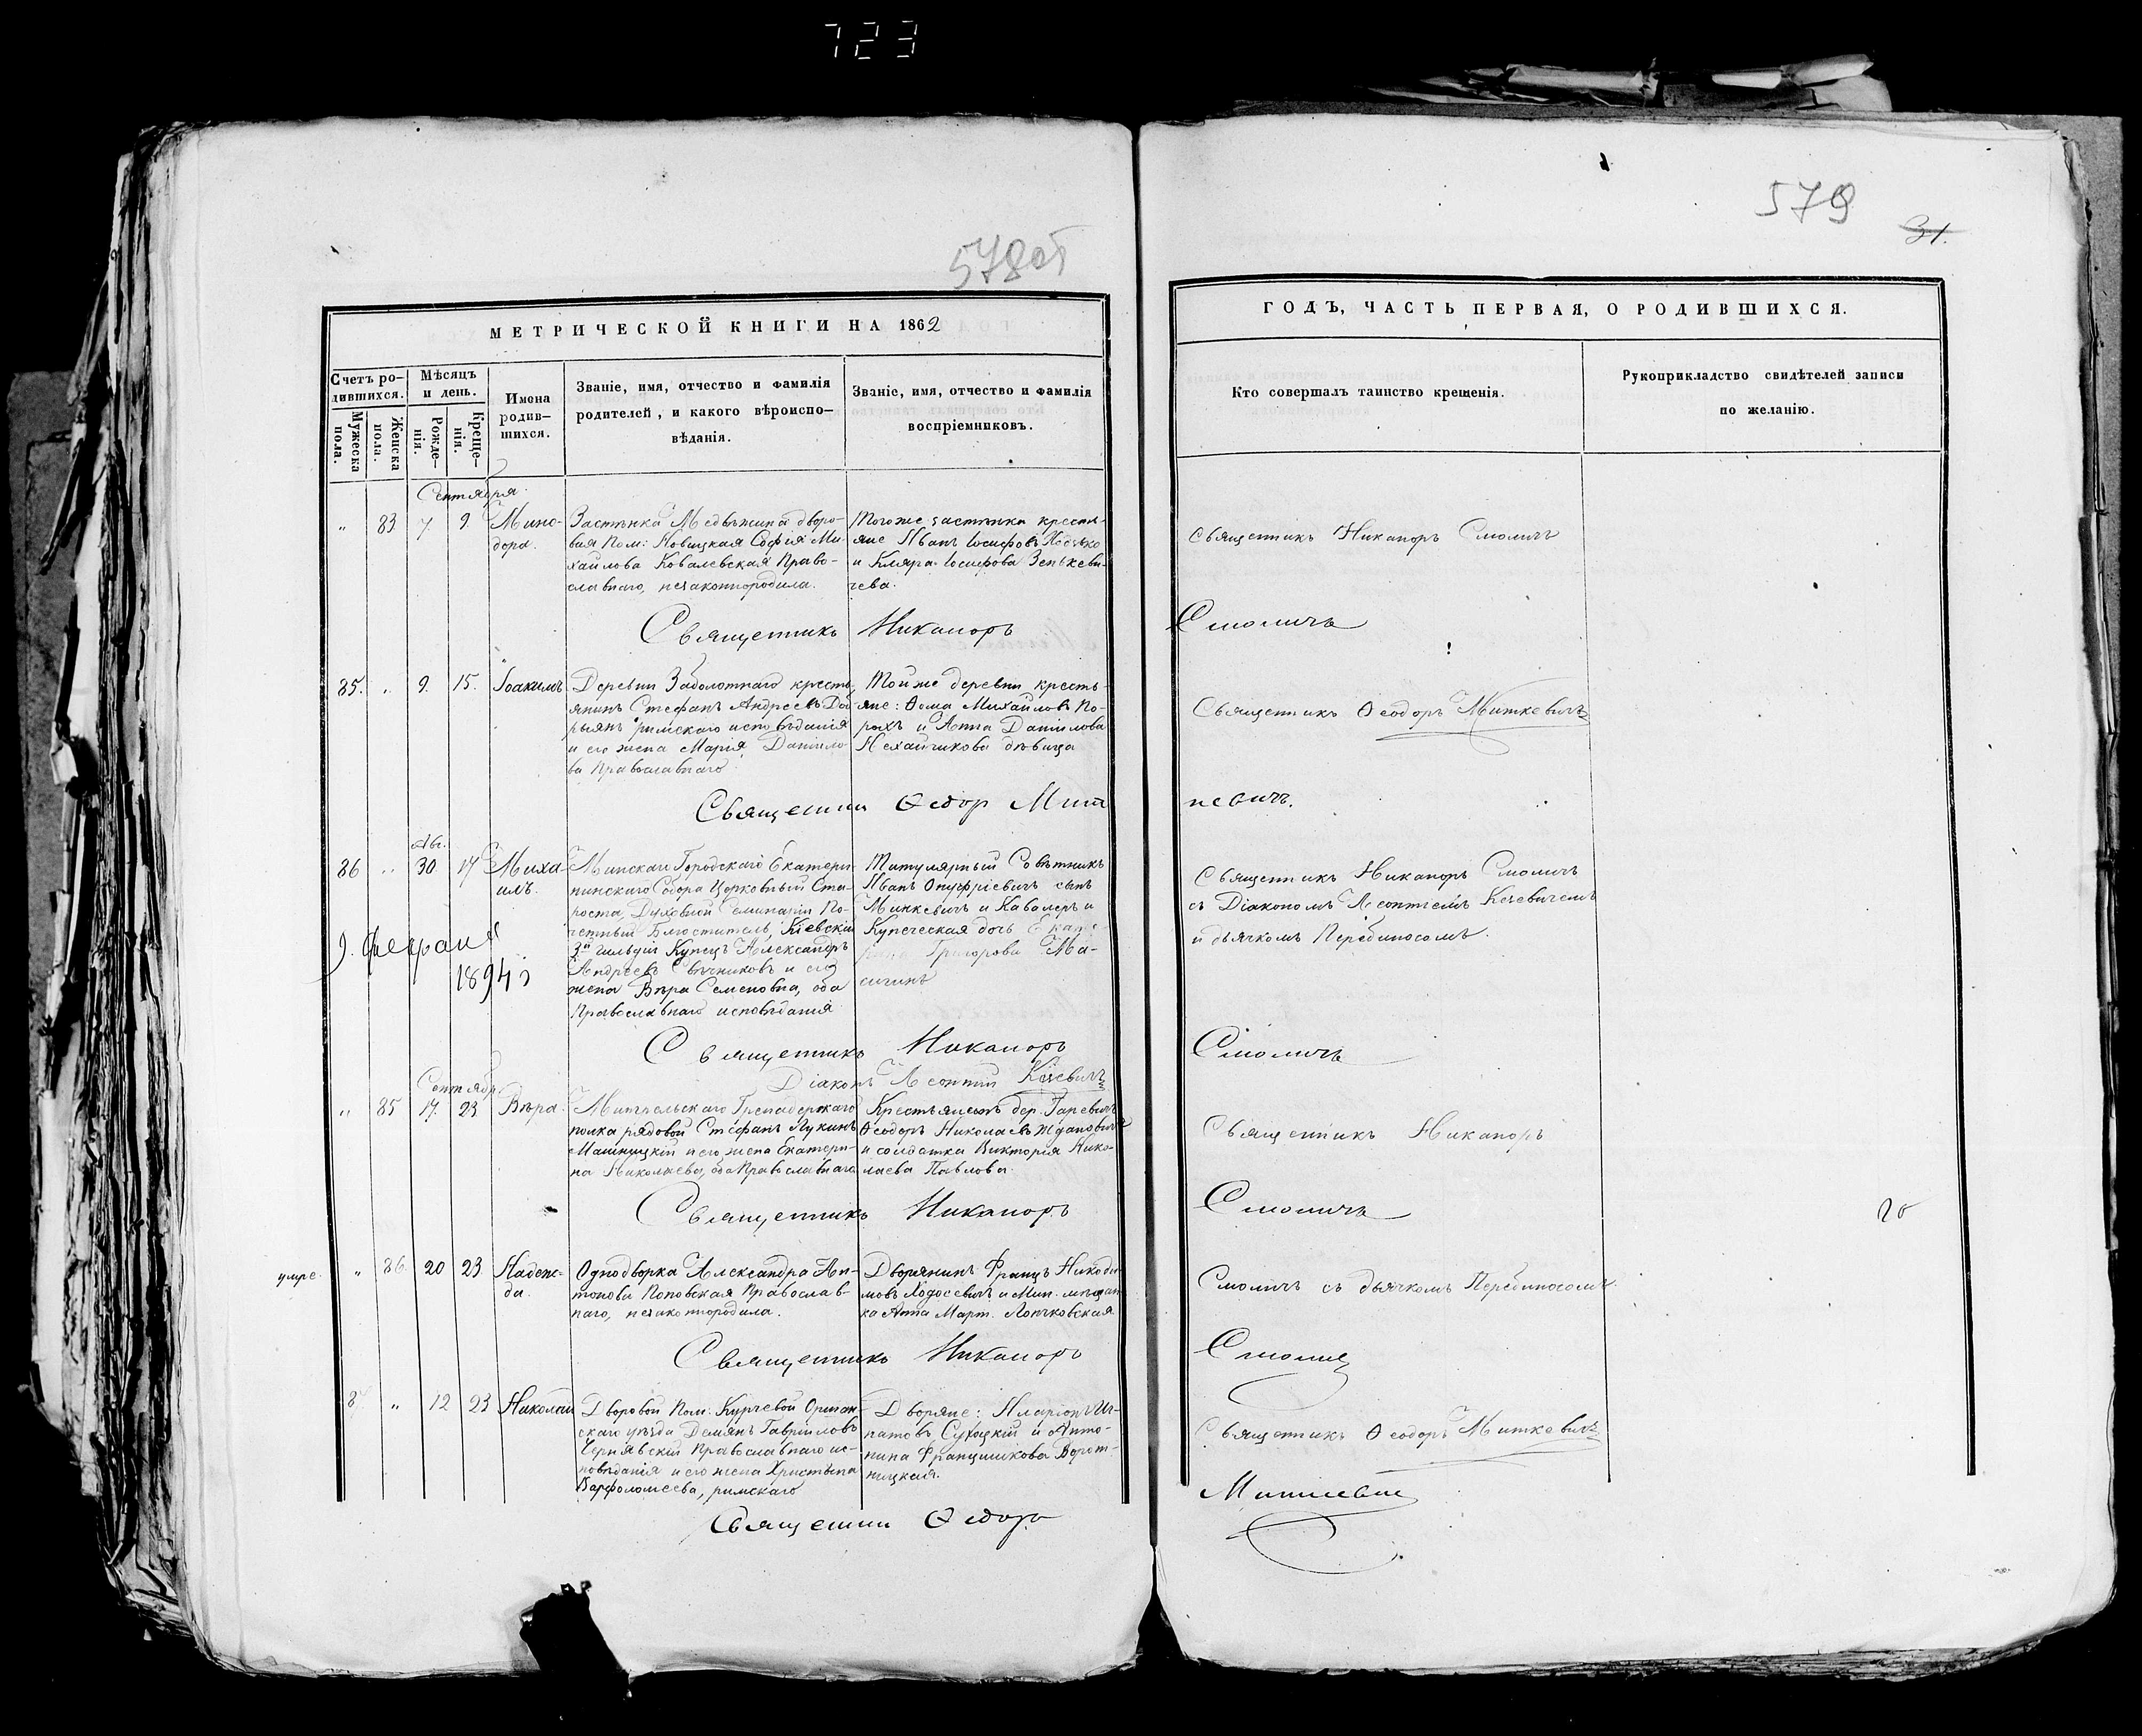 723
578об
МЕТРИЧЕСКОЙ КНИГИ НА 1862
Счетъ ро-
дившихся.
Мужеска
пола.
Женска
пола.
Мѣсяцъ
и день.
Рожде-
нія.
Креще-
нія.
Имена
родив-
шихся.
Званіе, имя, отчество и фамилія
родителей, и какого вѣроиспо-
вѣданія.
Званіе, имя, отчество и фамилія
воспріемниковъ.
Сентября
" 83 7 9 Мино-
дора.
Застѣнка Медвѣжина дворо-
вая Пом: Новицкая Софія Ми-
хайлова Ковалевская Право-
славнаго, незаконнородила.
Тогоже застѣнка кресть-
яне Иванъ Іосифовъ
и Кляра Іосифова Зенкеви-
чева.
Священникъ Никаноръ
85. " 9. 15. Іоакимъ
Деревни Заболотнаго кресть-
янинъ Стефанъ Андреевъ До-
рьянъ римскаго исповѣданія
и его жена Марія Данило-
ва Православнаго
Тойже деревни кресть-
яне: Ѳома Михайловъ По-
рахъ и Анна Данилова
Нехайчикова дѣвица
Священни Ѳедор Мит
Авг.
86 " 30. 17 Миха-
илъ.
Минскаго Городскаго Екатери-
нинскаго Собора Церковный Ста-
роста, Духовной Семинаріи По-
четный Блюститель, Кіевскій
3й гильдіи Купецъ Александръ
Андреевъ Свѣчниковъ и его
жена Вѣра Семеновна, оба
Православнаго исповѣданія
Титулярный Совѣтникъ
Иванъ Онуфріевичъ сынъ
Минкевичъ и Кавалеръ и
Купеческая дочь
Григорова Ма-
9. февраля
1894
Священникъ Никаноръ
Діаконъ Леонтій
Сентябр.
" 85 17. 23 Вѣра.
Гренадерскаго
полка рядовой Стефанъ Лукинъ
и его жена Екатери-
на Николаева, оба Православнаго
Крестьянинъ дер. Гаревичъ
Ѳеодоръ Николаевъ Ждановичъ
и солдатка Викторія Нико-
лаева Павлова.
Священникъ Никаноръ
умре.
" 86. 20 23 Надеж-
да.
Однодворка Александра Ан-
тонова Поповская Православ-
наго, незаконнородила.
Дворянинъ Францъ Никоди-
мовъ Ходосевичъ и Мин. мѣщан-
ка Анна Март. Лопчковская
Священникъ Никаноръ
8 " 12 23 Николай
Дворовой Пом: Курчевой Оршан-
скаго уѣзда Демянъ Гавриловъ
Чернявскій Православнаго ис-
повѣданія и его жена Христина
Варфоломеева, римскаго
Дворяне: Иларіонъ Иг-
натовъ Сухоцкій и Анто-
нина Францишкова Ворот-
ницкая.
Священни Ѳедоръ
579
31.
ГОДЪ, ЧАСТЬ ПЕРВАЯ, О РОДИВШИХСЯ.
Кто совершалъ таинство крещенія.
Рукоприкладство свидѣтелей записи
по желанію.
Священникъ Никаноръ Смоличъ
Смоличъ
Священникъ Ѳеодоръ Миткевичъ
кевичъ.
Священникъ Никаноръ Смоличъ
съ Діакономъ Леонтіемъ
и дьячкомъ Перебиносомъ.
Смоличъ
Священникъ Никаноръ
Смоличъ
Смоличъ съ дьячкомъ Перебиносомъ
Смолич
Священникъ Ѳеодоръ Миткевичъ
Миткевич